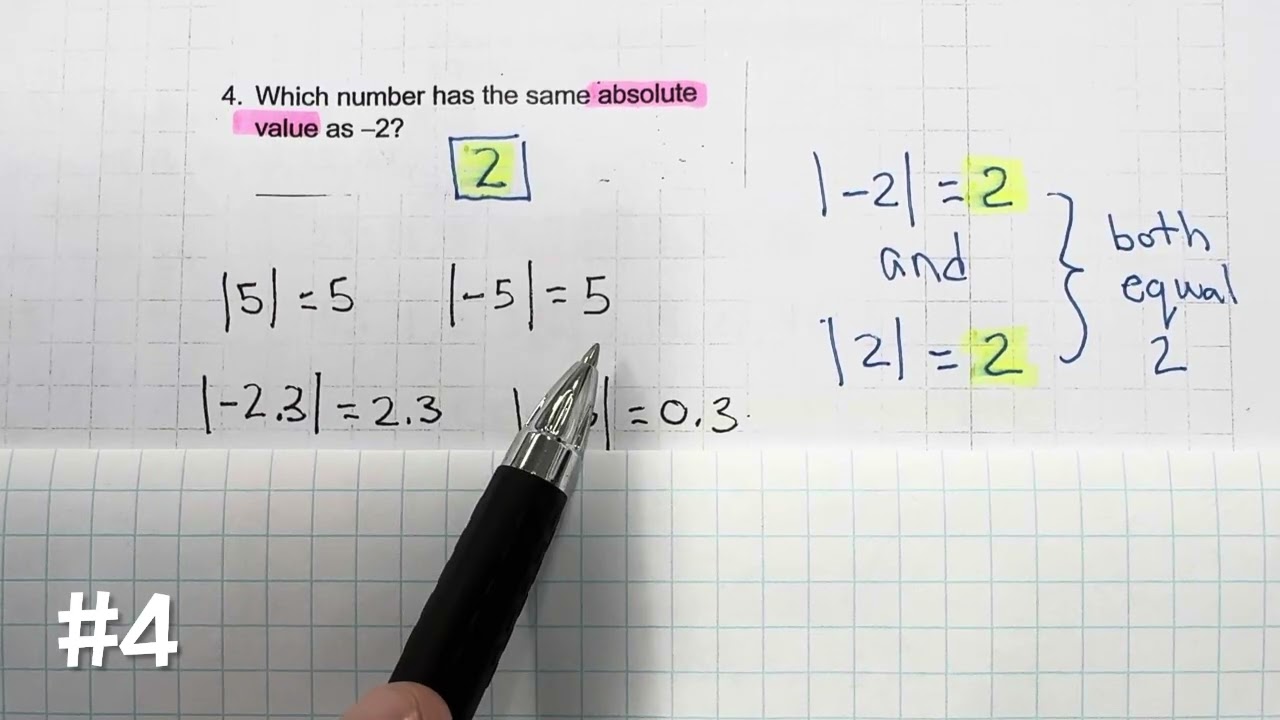 4. Which number has the same absolute
value as –2?
2
|5| = 5
|-5| = 5
|-2.3| = 2.3
| = 0.3
|-2| = 2
and
|2| = 2
both
equal
2
#4